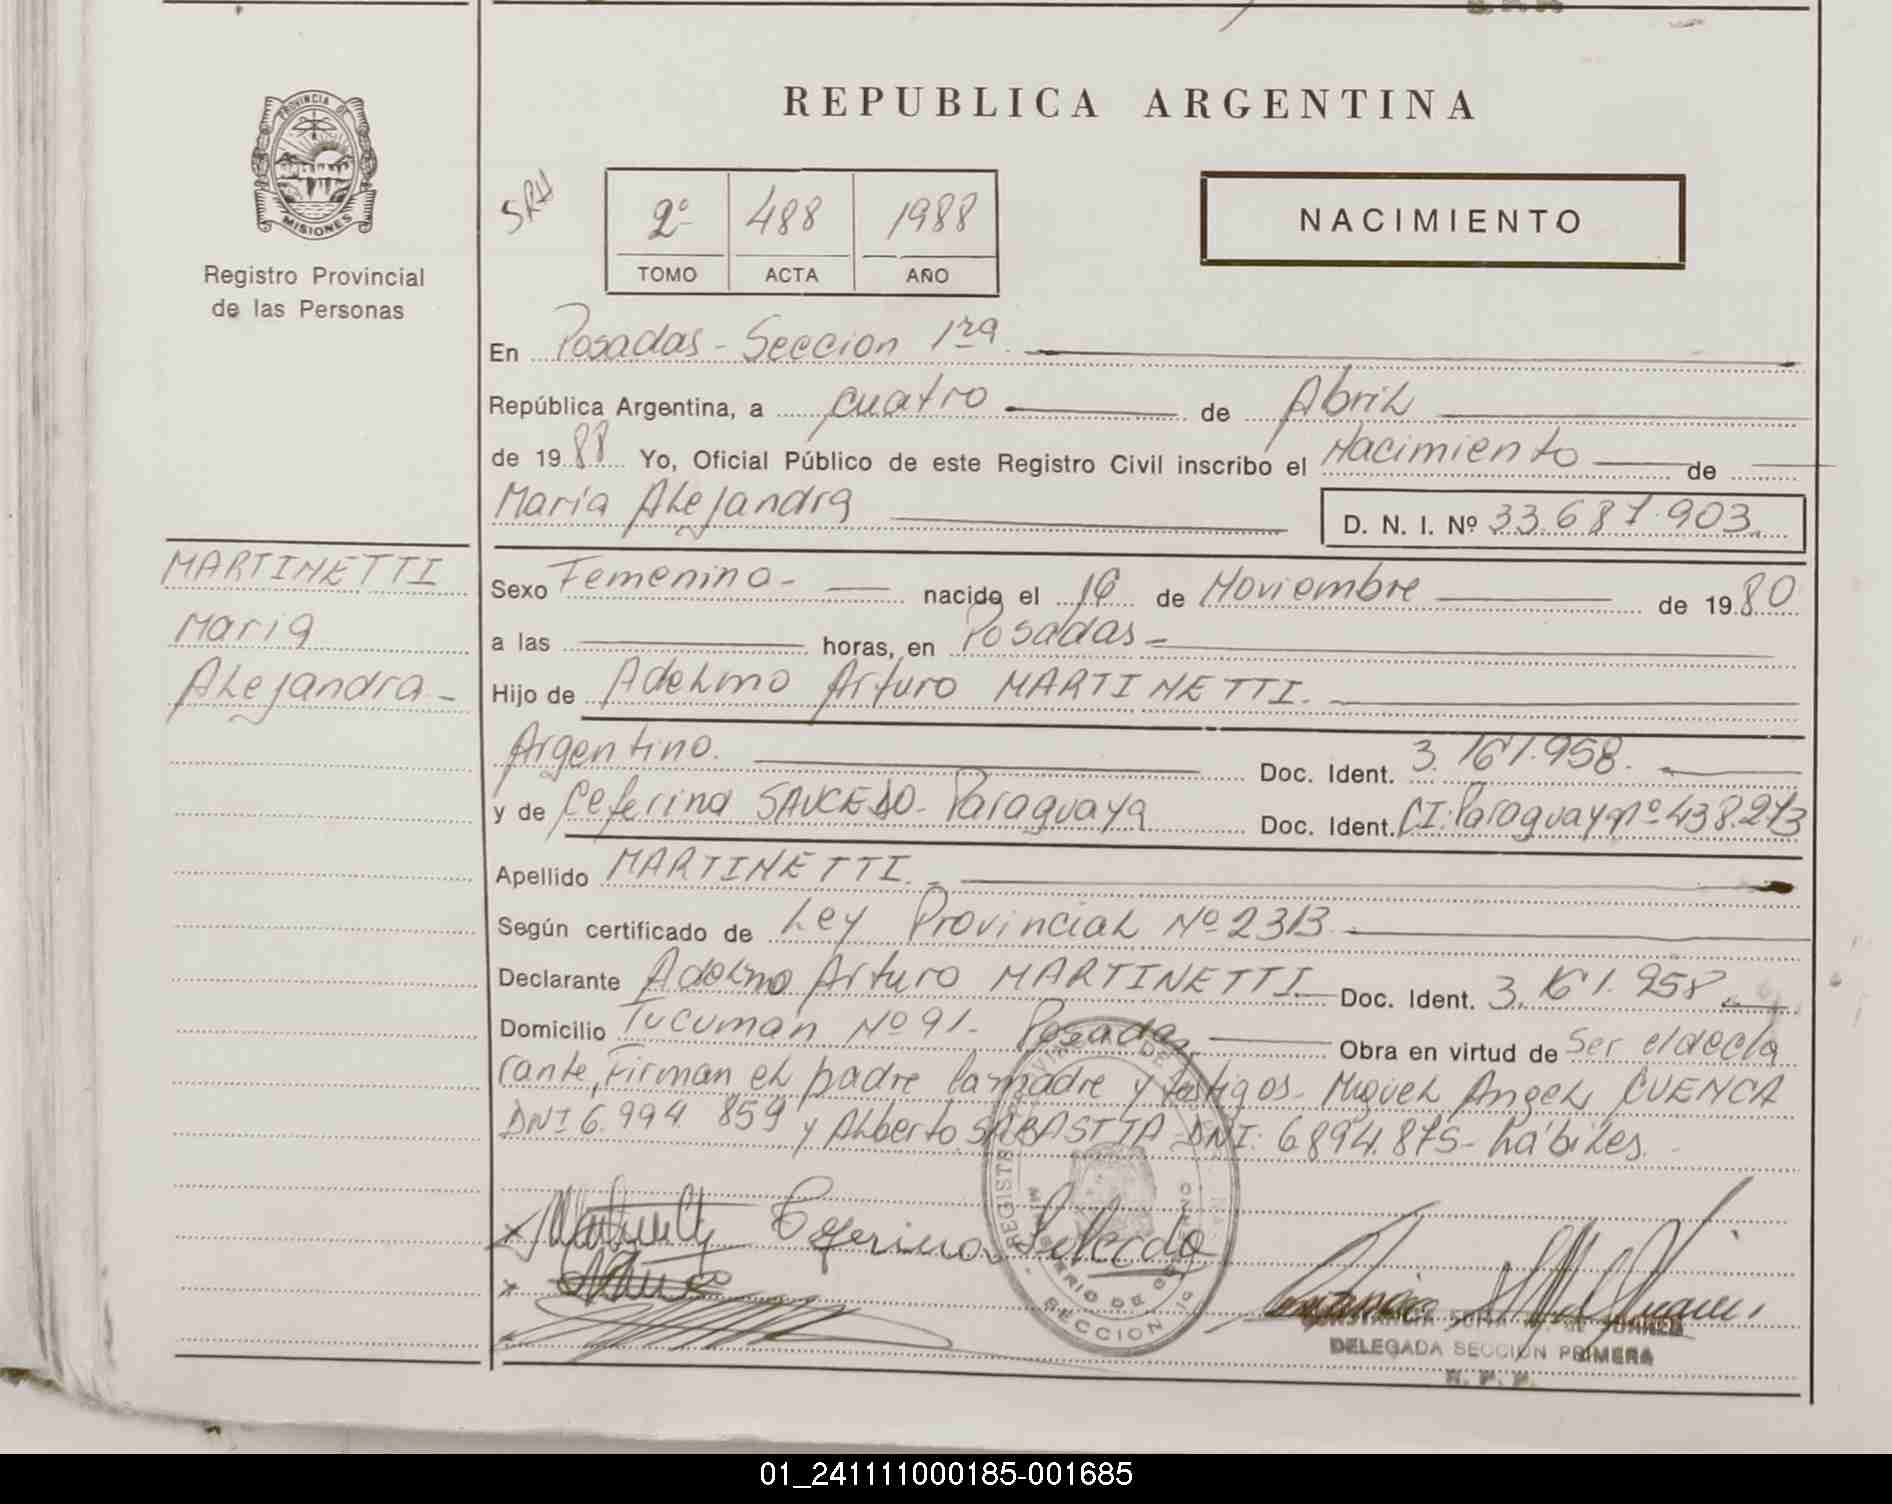 REPUBLICA ARGENTINA
PROVINCIA DE
MISIONES
Registro Provincial
de las Personas
SRH
2º 488 1988
TOMO ACTA AÑO
NACIMIENTO
En Posadas - Seccion 1ra
República Argentina, a cuatro de Abril
de 1988 Yo, Oficial Público de este Registro Civil inscribo el Nacimiento de
Maria Alejandra
D. N. I. Nº 33.687.903
MARTINETTI
Maria
Alejandra -
Sexo Femenino - nacido el de Noviembre de 1980
a las horas, en Posadas -
Hijo de Adelmo Arturo MARTINETTI.
Argentino. Doc. Ident. 3.161.958.
y de Ceferina SAUCEDO - Paraguaya Doc. Ident. CI: Paraguay nº 438.273
Apellido MARTINETTI.
Según certificado de Ley Provincial Nº 2313
Declarante Adelmo Arturo MARTINETTI Doc. Ident. 3.161.958
Domicilio Tucuman Nº 91 - Posadas Obra en virtud de Ser el decla
rante, Firman el padre la madre y testigos - Miguel Angel CUENCA
DNI 6.994.859 y Alberto SABASTTA DNI: 6894.875 - hábiles.
Ceferina
MINISTERIO DE GOBIERNO
SECCION 1ª
DELEGADA SECCION PRIMERA
01_241111000185-001685